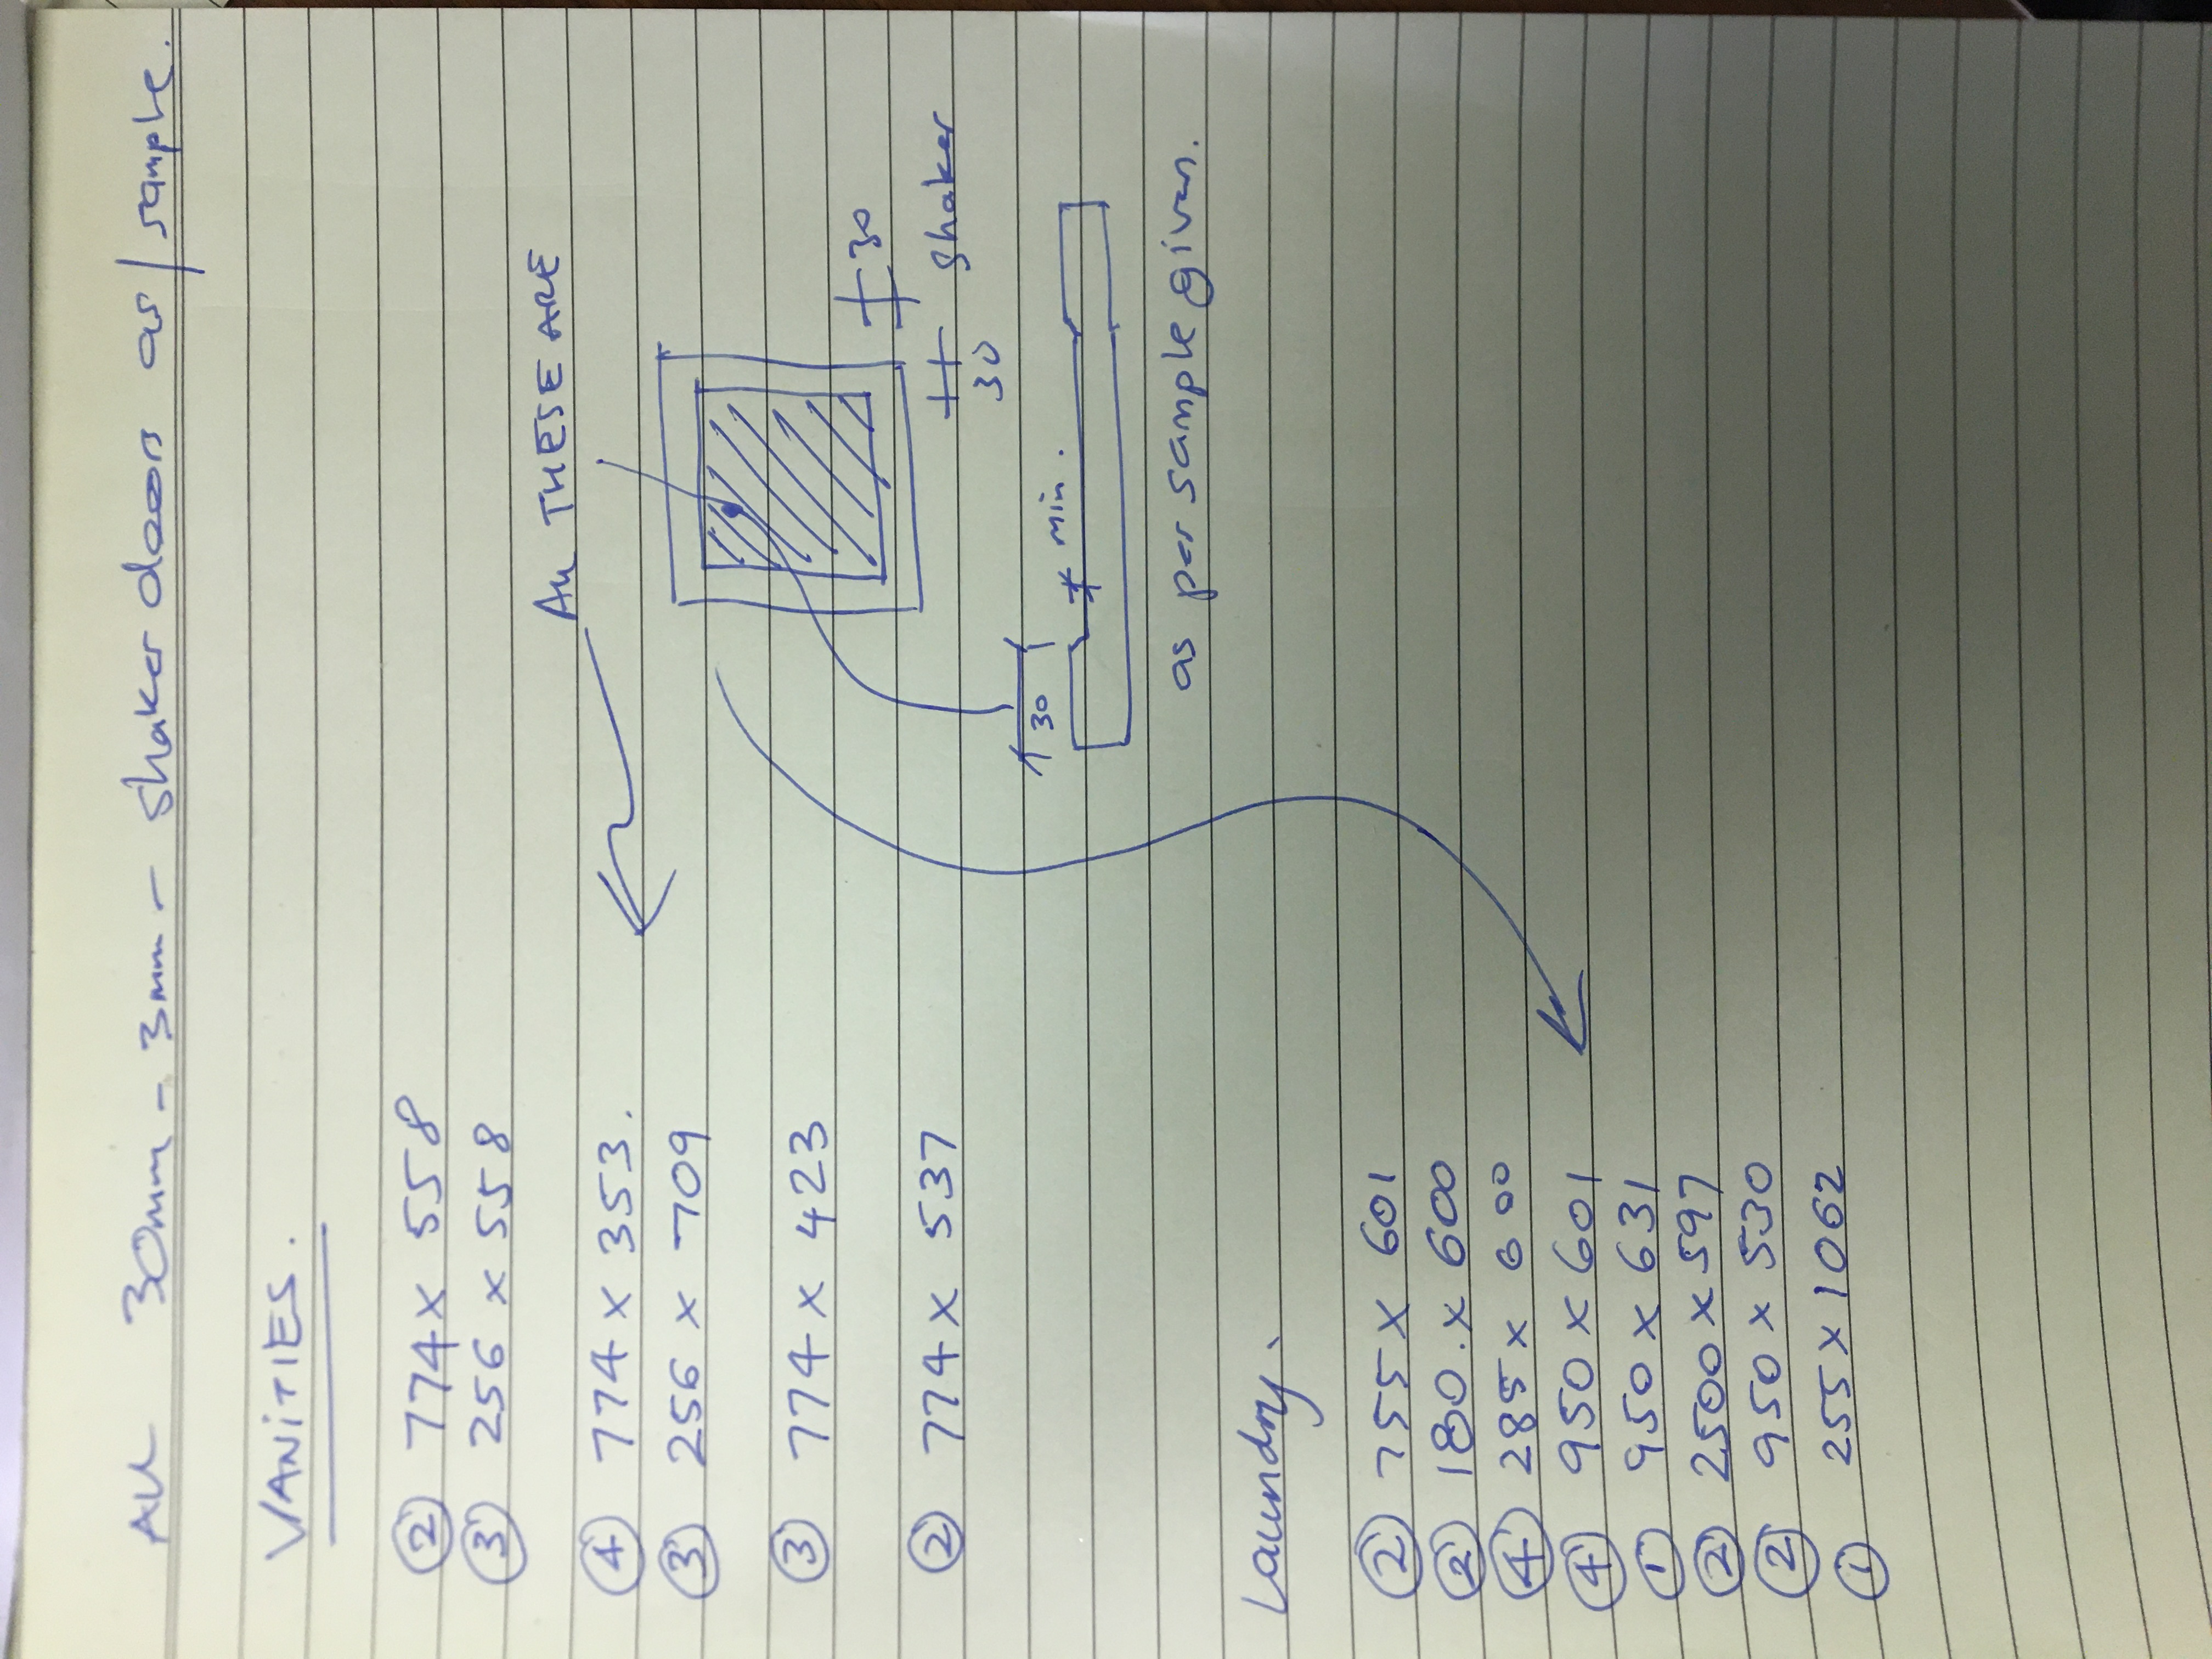 All 30mm - 3mm - Shaker doors as / sample.
VANITIES.
② 774 x 558
③ 256 x 558
All THESE ARE
④ 774 x 353.
③ 256 x 709
③ 774 x 423
30
② 774 x 537
30
Shaker
30
min.
as per sample given.
Laundry.
② 755 x 601
② 180. x 600
④ 285 x 600
④ 950 x 601
① 950 x 631
② 2500 x 597
② 950 x 530
① 255 x 1062